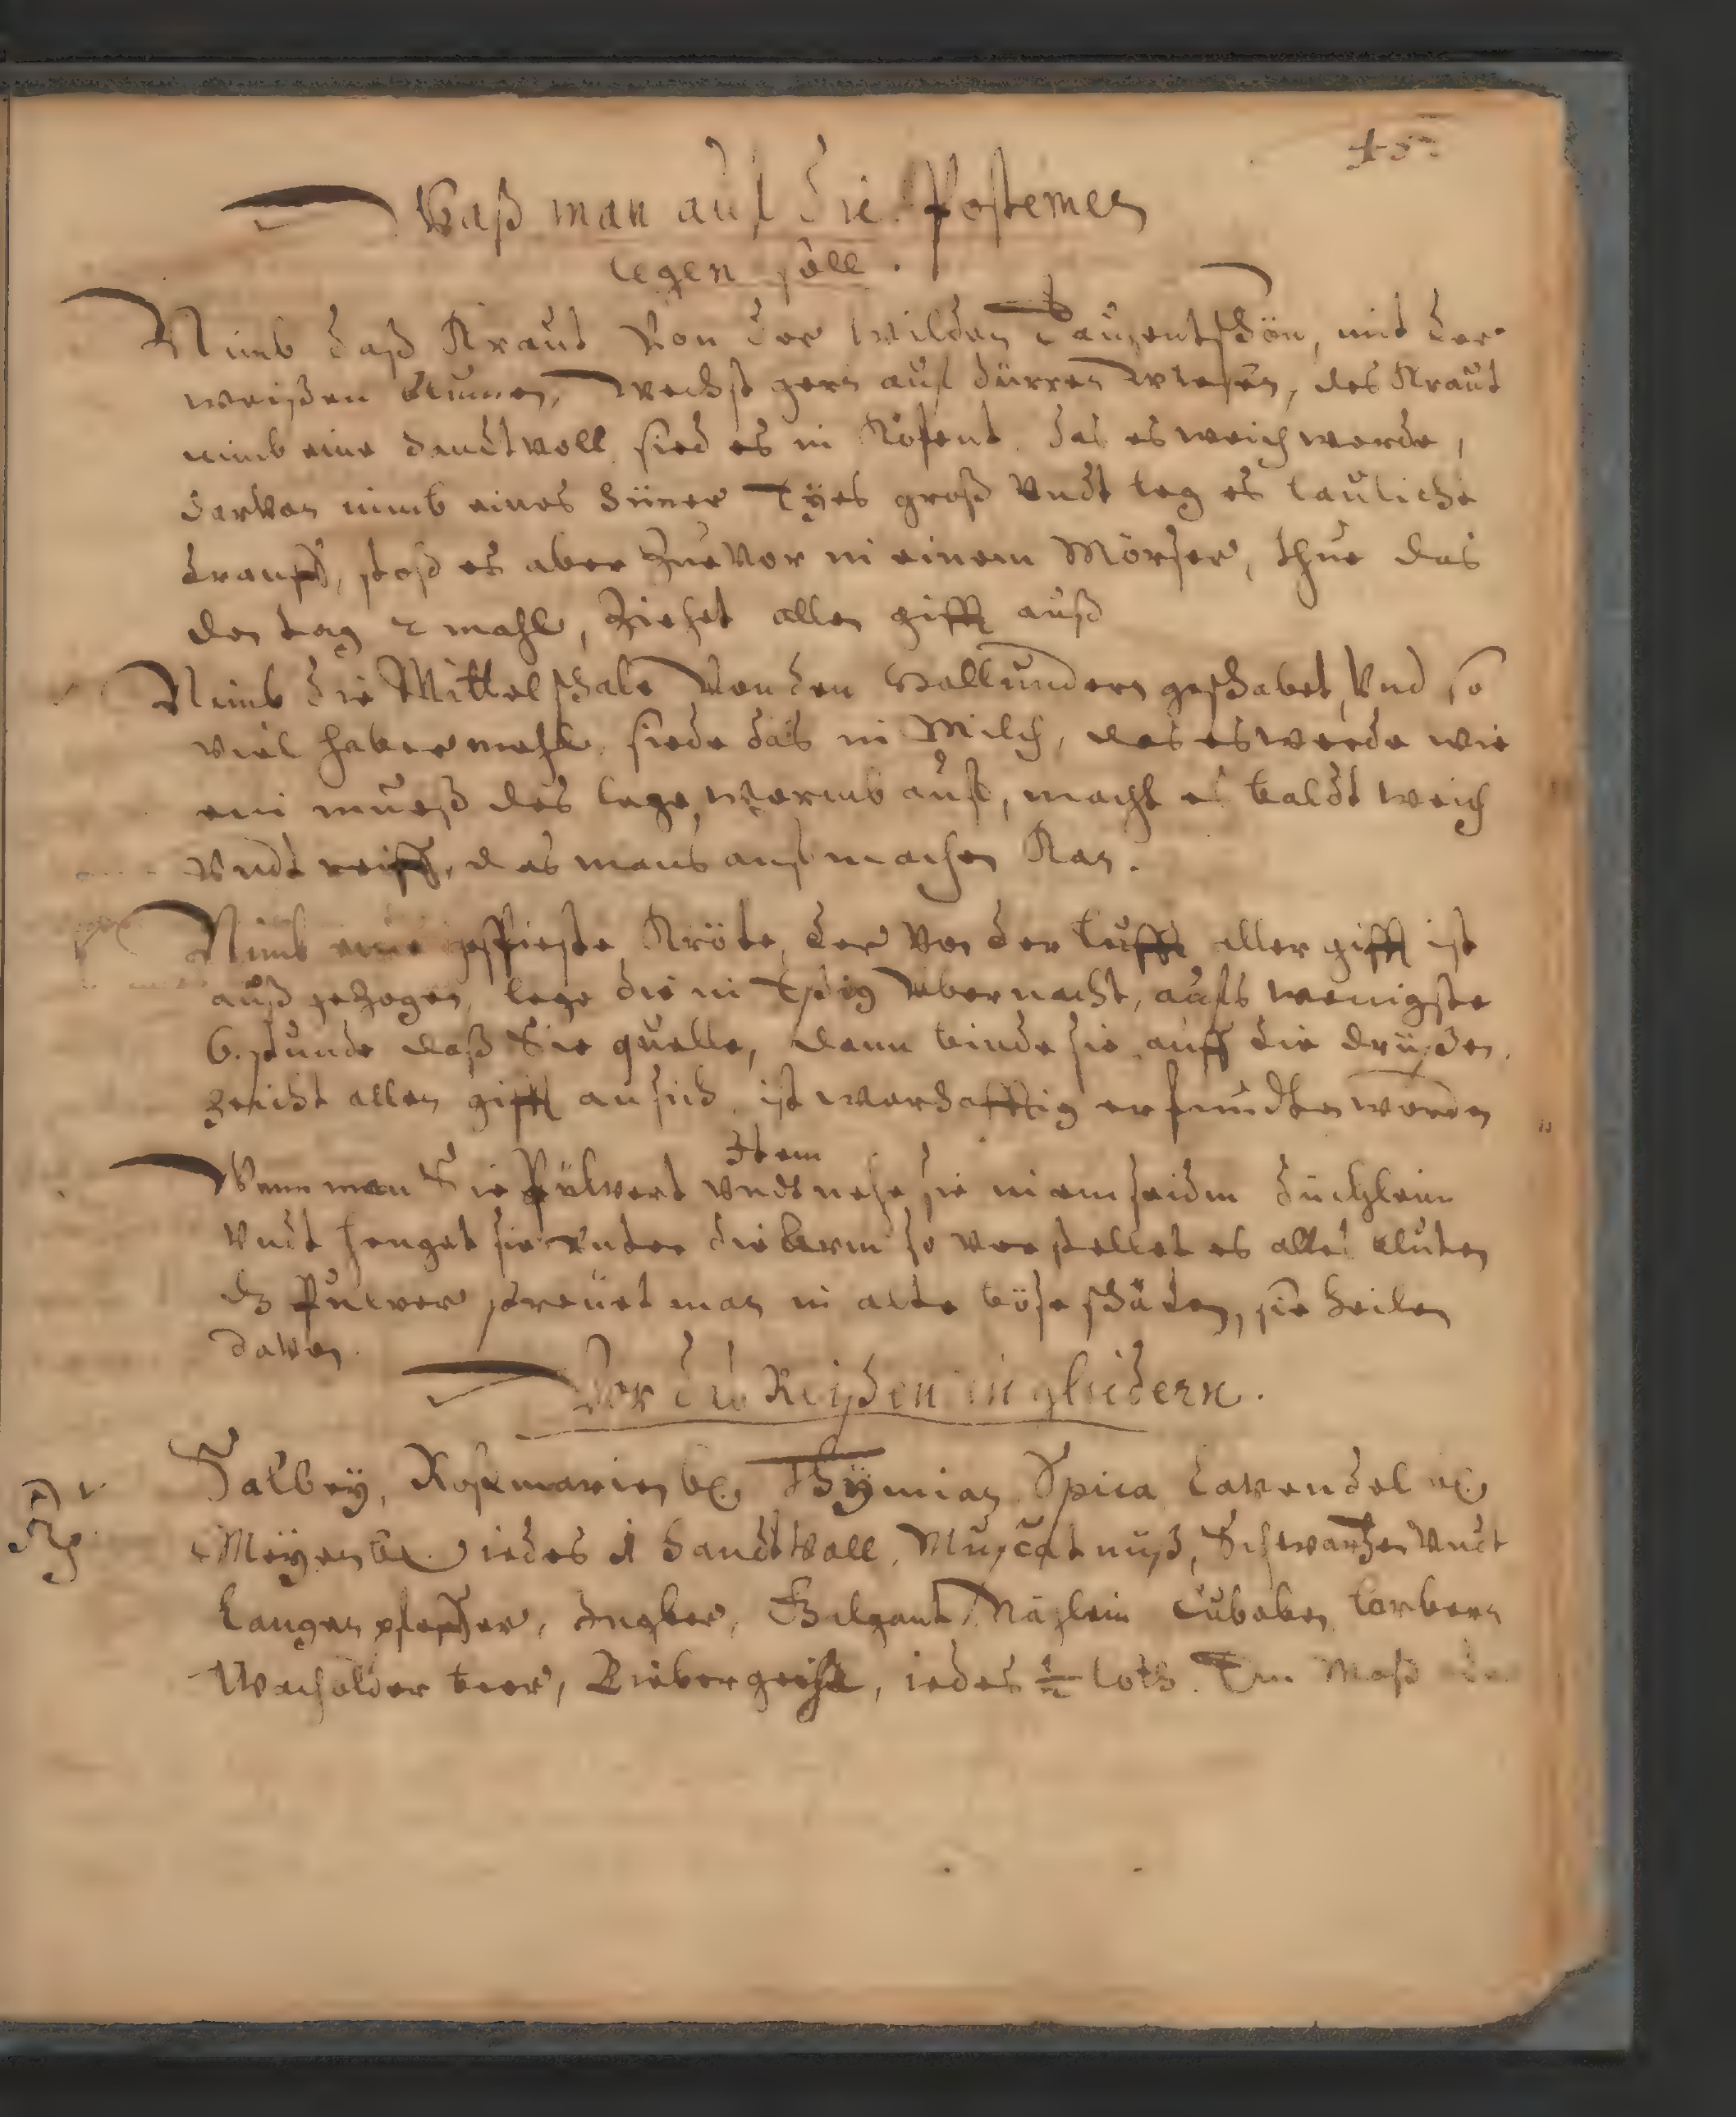 Waß man auf die Postemen
legen soll.
Nimb daß Kraut Von der wilden Tausentschön, mit der
weißen blumen, wechst gern auf dürren wiesen, des Kraut
nimb eine handtvoll sied es in Kofent das es weich werde,
darvon nimb eines hüner Eyes groß Vndt leg es laulicht
drauff, stoß es aber Zuvor in einem Mörser, thue das
den tag 2 mahl, Ziehet allen gifft auß
Nimb die Mittelschale Von den Hollundern geschabet, Vnd so
viel habermehl, siede das in Milch, das es werde wie
ein mueß des lege warmb auf, macht es baldt weich
Vndt reiff, das mans aufmachen Kan.
Nimb eine gespieste Kröte, der Von der lufft aller gifft ist
auß gezogen, lege die in Eßig Vbernacht, aufs wenigste
6. stunde daß Sie quelle, dann binde sie auff die drüßen,
zeucht allen gifft an sich ist warhafftig erfundten worden
Item
Wenn man Sie Pülvert Vndt nehe sie in ein seiden düchlein
Vndt henget sie vnter die Arm so verstellet es alles bluten
dz Pulver streuet man in alte böse schäden, sie heilen
davon.
Vor das Reißen in gliedern.
Salbey, Rosmarien Thymian Spica Lavendel
Meyen iedes 1 handtvoll, Muscatnuß, Schwarzen Vndt
Langen pfeffer, Ingber, Galgant, Näglein Cubeben lorbern
Wacholder beer, Biebergeihl, iedes ½ loth. Ein Maß